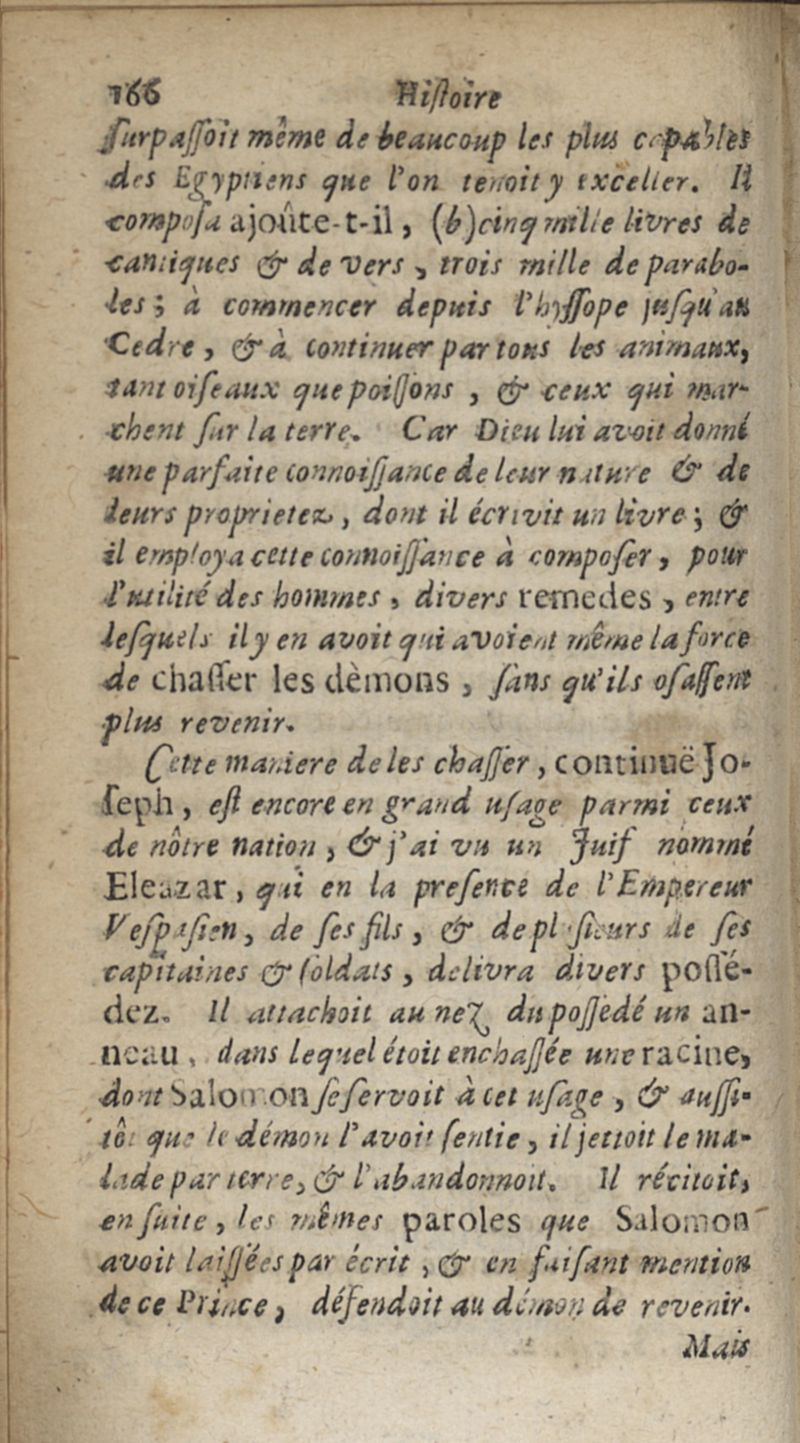 166 Hiſtoire
ſurpaſſoit même de beaucoup les plus capables
des Egyptiens que l'on tenoit y exceller. Il
compoſa ajoûte-t-il, (b) cinq mille livres de
cantiques & de vers, trois mille de parabo-
les; à commencer depuis l'hyſſope juſqu'au
Cedre, & à continuer par tous les animaux,
tant oiſeaux que poiſſons, & ceux qui mar-
chent ſur la terre. Car Dieu lui avoit donné
une parfaite connoiſſance de leur nature & de
leurs proprietez, dont il écrivit un livre; &
il employa cette connoiſſance à compoſer, pour
l'utilité des hommes, divers remedes, entre
leſquels il y en avoit qui avoient même la force
de chaſſer les dèmons, ſans qu'ils oſaſſent
plus revenir.
Cette maniere de les chaſſer, continuë Jo-
ſeph, eſt encore en grand uſage parmi ceux
de nôtre nation, & j'ai vu un Juif nommé
Eleazar, qui en la preſence de l'Empereur
Veſpaſien, de ſes fils, & de pluſieurs de ſes
capitaines & ſoldats, delivra divers poſſé-
dez. Il attachoit au nez du poſſedé un an-
neau, dans lequel étoit enchaſſée une racine,
dont Salomon ſe ſervoit à cet uſage, & auſſi-
tôt que le démon l'avoit ſentie, il jettoit le ma-
lade par terre, & l'abandonnoit. Il récitoit,
enſuite, les mêmes paroles que Salomon
avoit laiſſées par écrit, & en faiſant mention
de ce Prince, défendoit au démon de revenir.
Mais